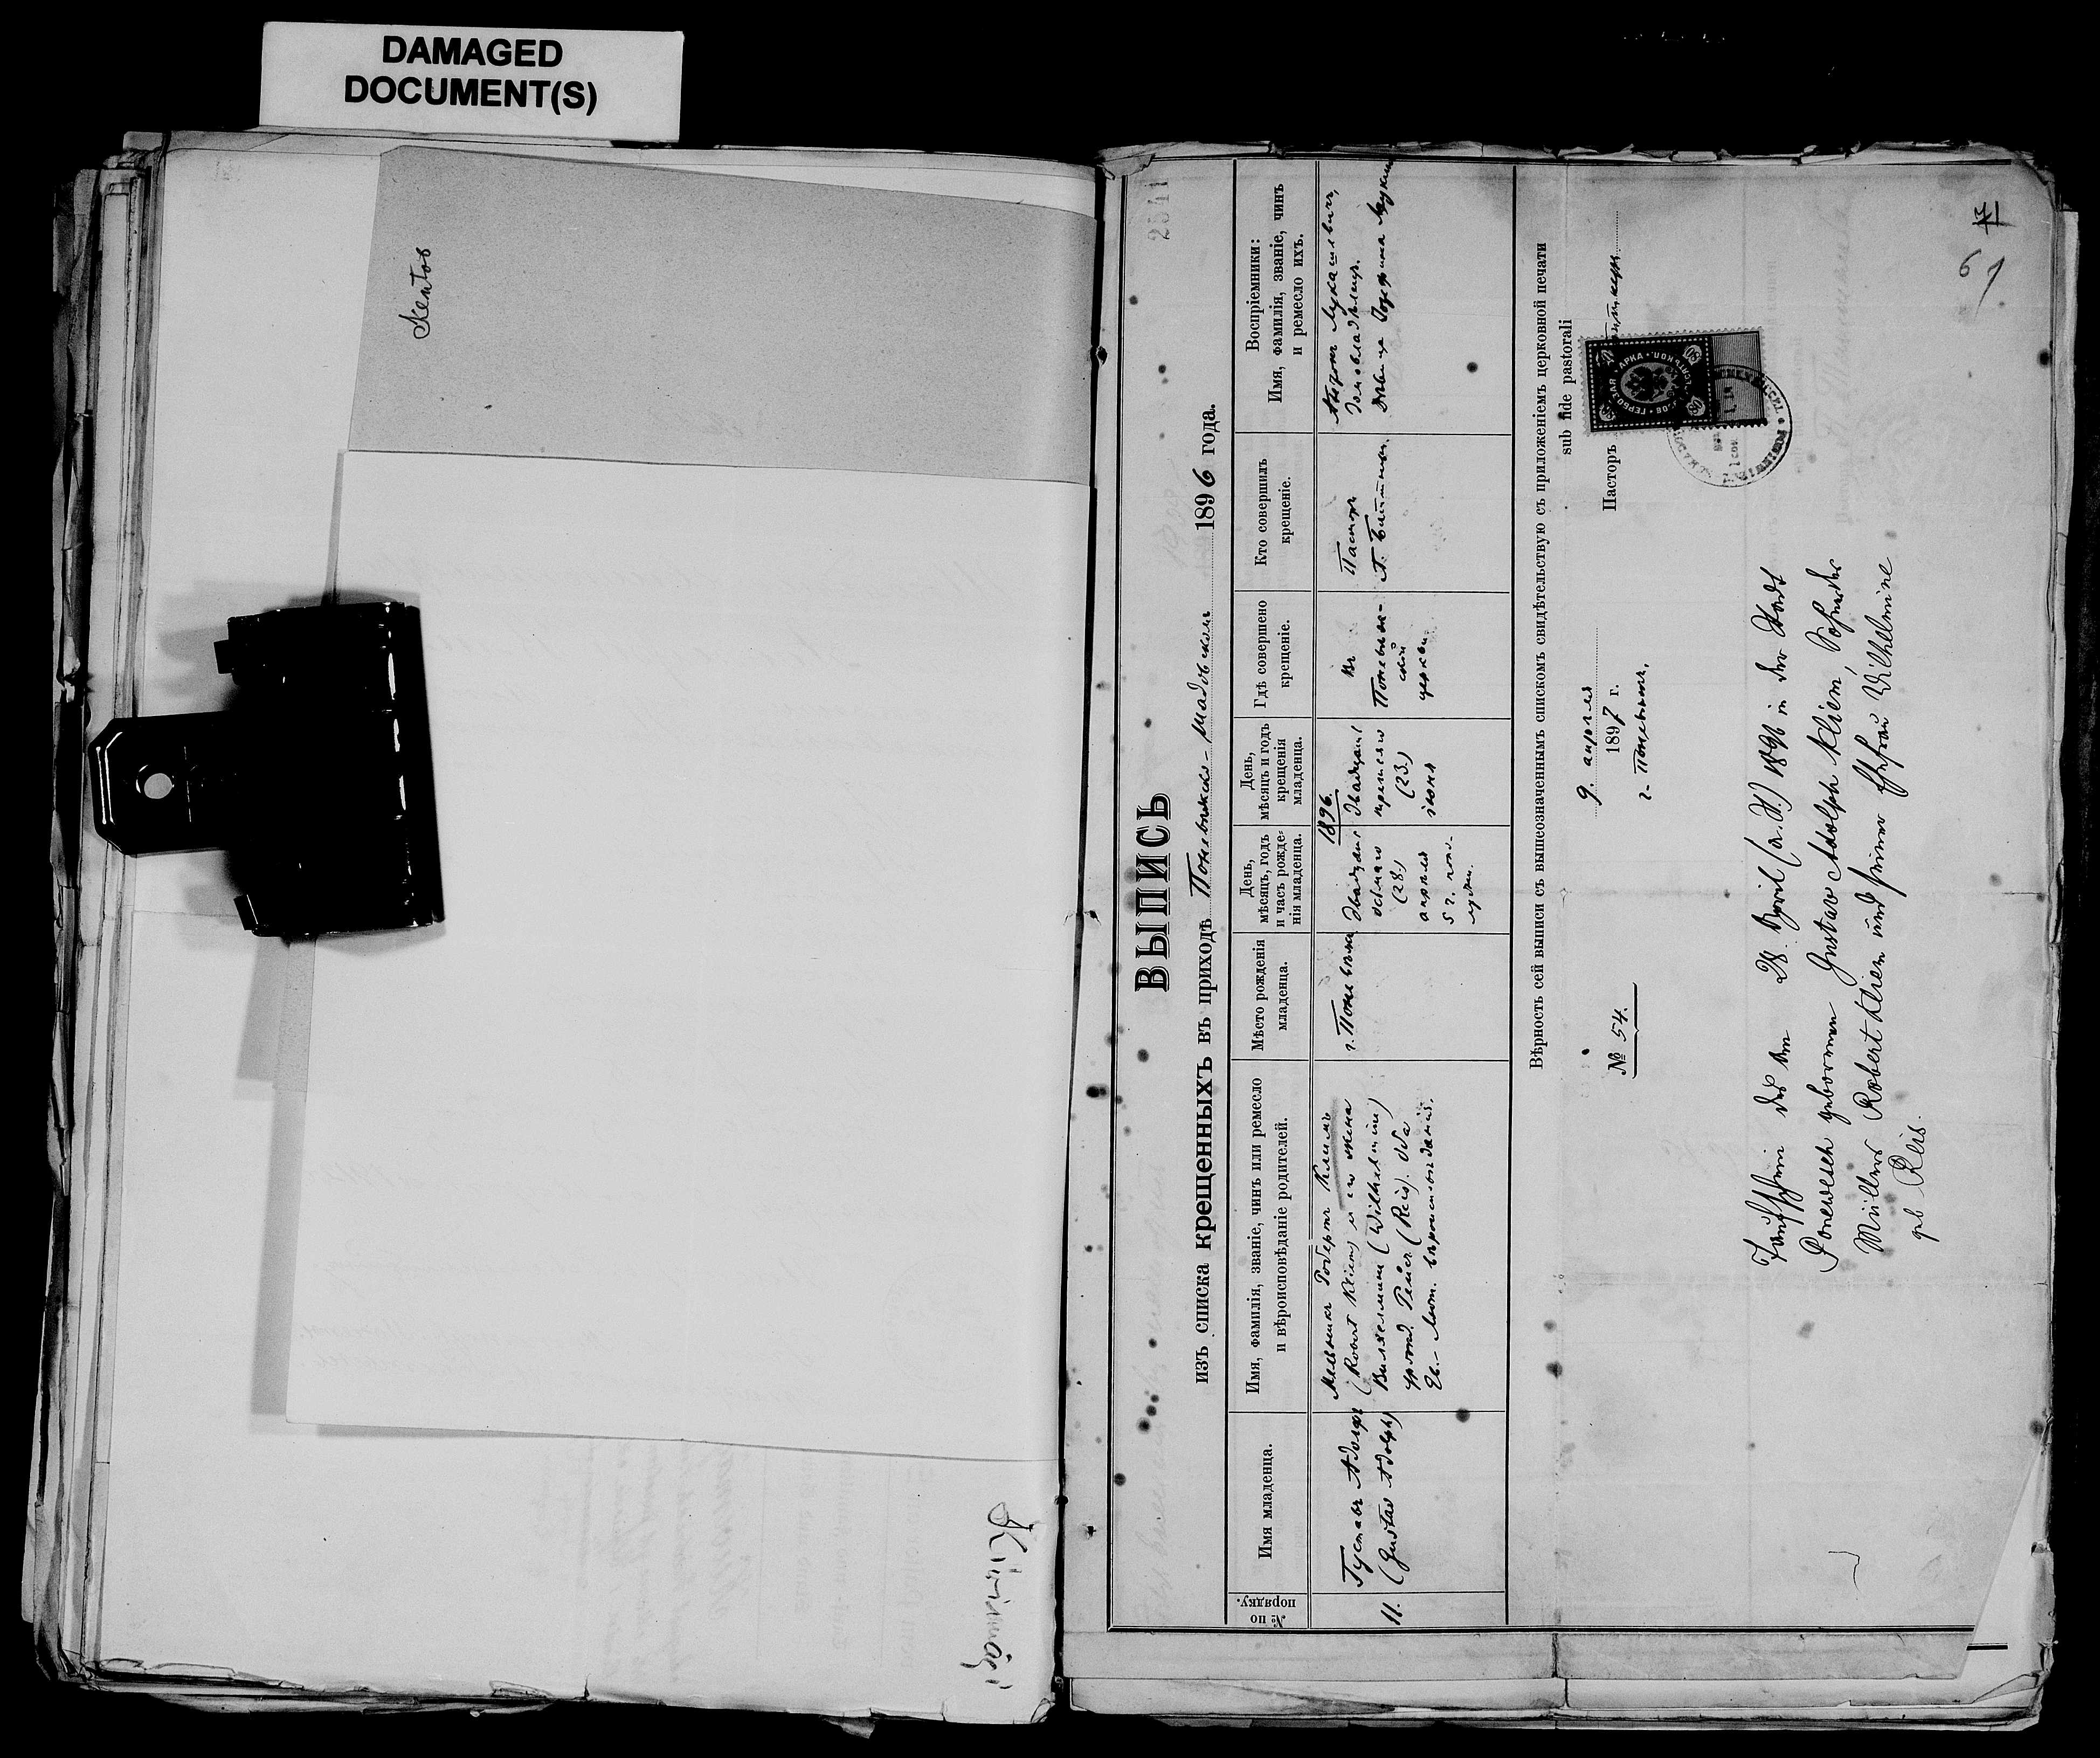 DAMAGED
DOCUMENT(S)
2541
ВЫПИСЬ
изъ списка крещенныхъ въ приходѣ Поневѣжско-Шадовскомъ 1896 года.
№ по
порядку.
Имя младенца.
Имя, фамилія, званіе, чинъ или ремесло
и вѣроисповѣданіе родителей.
Мѣсто рожденія
младенца.
День,
мѣсяцъ, годъ
и часъ рожде-
нія младенца.
День,
мѣсяцъ и годъ
крещенія
младенца.
Гдѣ совершено
крещеніе.
Кто совершилъ
крещеніе.
Воспріемники:
Имя, фамилія, званіе, чинъ
и ремесло ихъ.
11.
Густавъ Адольфъ
(Gustav Adolph)
Мельникъ Робертъ Климъ
(Robert Kliem) и его жена
Вильгельмина (Wilhelmine)
урожд. Рейсъ (Reis). Оба
Ев.-Лют. вѣроисповѣданія.
г. Поневѣжъ
1896.
Двадцать
осьмаго
(28)
апрѣля
5 ч.
Двадцать
третьяго
(23)
іюня
Въ
Поневѣж-
ской
церкви
Пасторъ
домовладѣлецъ.
Дѣвица
Вѣрность сей выписи съ вышеозначеннымъ спискомъ свидѣтельствую съ приложеніемъ церковной печати
sub fide pastorali
9. апрѣля
1897 г.
г. Поневѣжъ.
Пасторъ
№ 54.
ГЕРБОВАЯ МАРКА
80
Taufschein des am 28. April (a. St.) 1896 in der Stadt
Ponewesch geborenen Gustav Adolph Kliem, Sohn des
Müllers Robert Kliem und seiner Ehefrau Wilhelmine
geb. Reis.
6